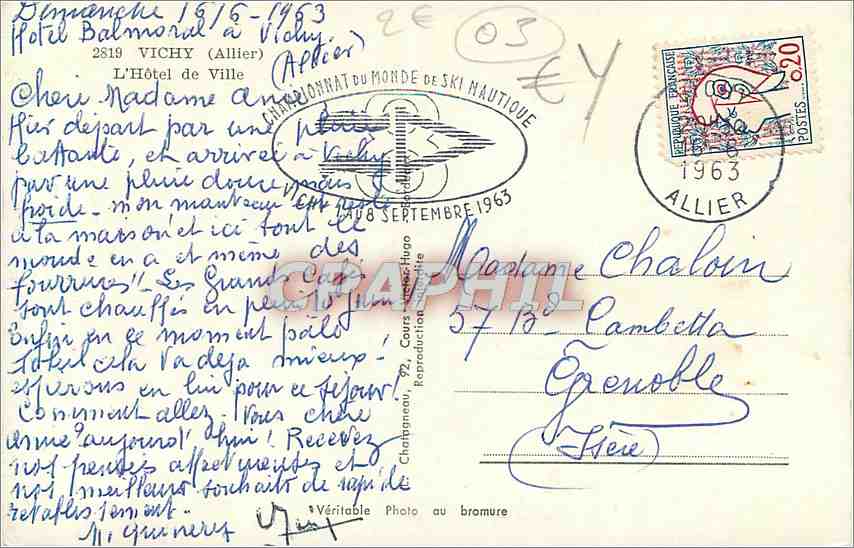 Dimanche 16/6-1963
Hôtel Balmoral à Vichy.
(Allier)
2819 VICHY (Allier)
L'Hôtel de Ville
2€
03
€
CHAMPIONNAT DU MONDE DE SKI NAUTIQUE
1 AU 8 SEPTEMBRE 1963
REPUBLIQUE FRANÇAISE
0,20
POSTES
1963
ALLIER
Chère Madame
Hier départ par une pluie
battante, et arrivée à Vichy
par une pluie douce, mais
froide - mon manteau est resté
à la maison et ici tout le
monde en a et même des
fourrures!! Les Grands Cafés
sont chauffés en plein 16 Juin!
Enfin en ce moment pâle
soleil cela va déjà mieux -
espérons en lui pour ce séjour!
Comment allez-vous chère
amie aujourd'hui! Recevez
nos pensées affectueuses et
nos meilleurs souhaits de rapide
rétablissement -
Madame Chaloin
57 Bd Gambetta
Grenoble
(Isère)
Chatagneau, 92, Cours Victor-Hugo Bordeaux
Reproduction interdite
CPAPHIL
Véritable Photo au bromure